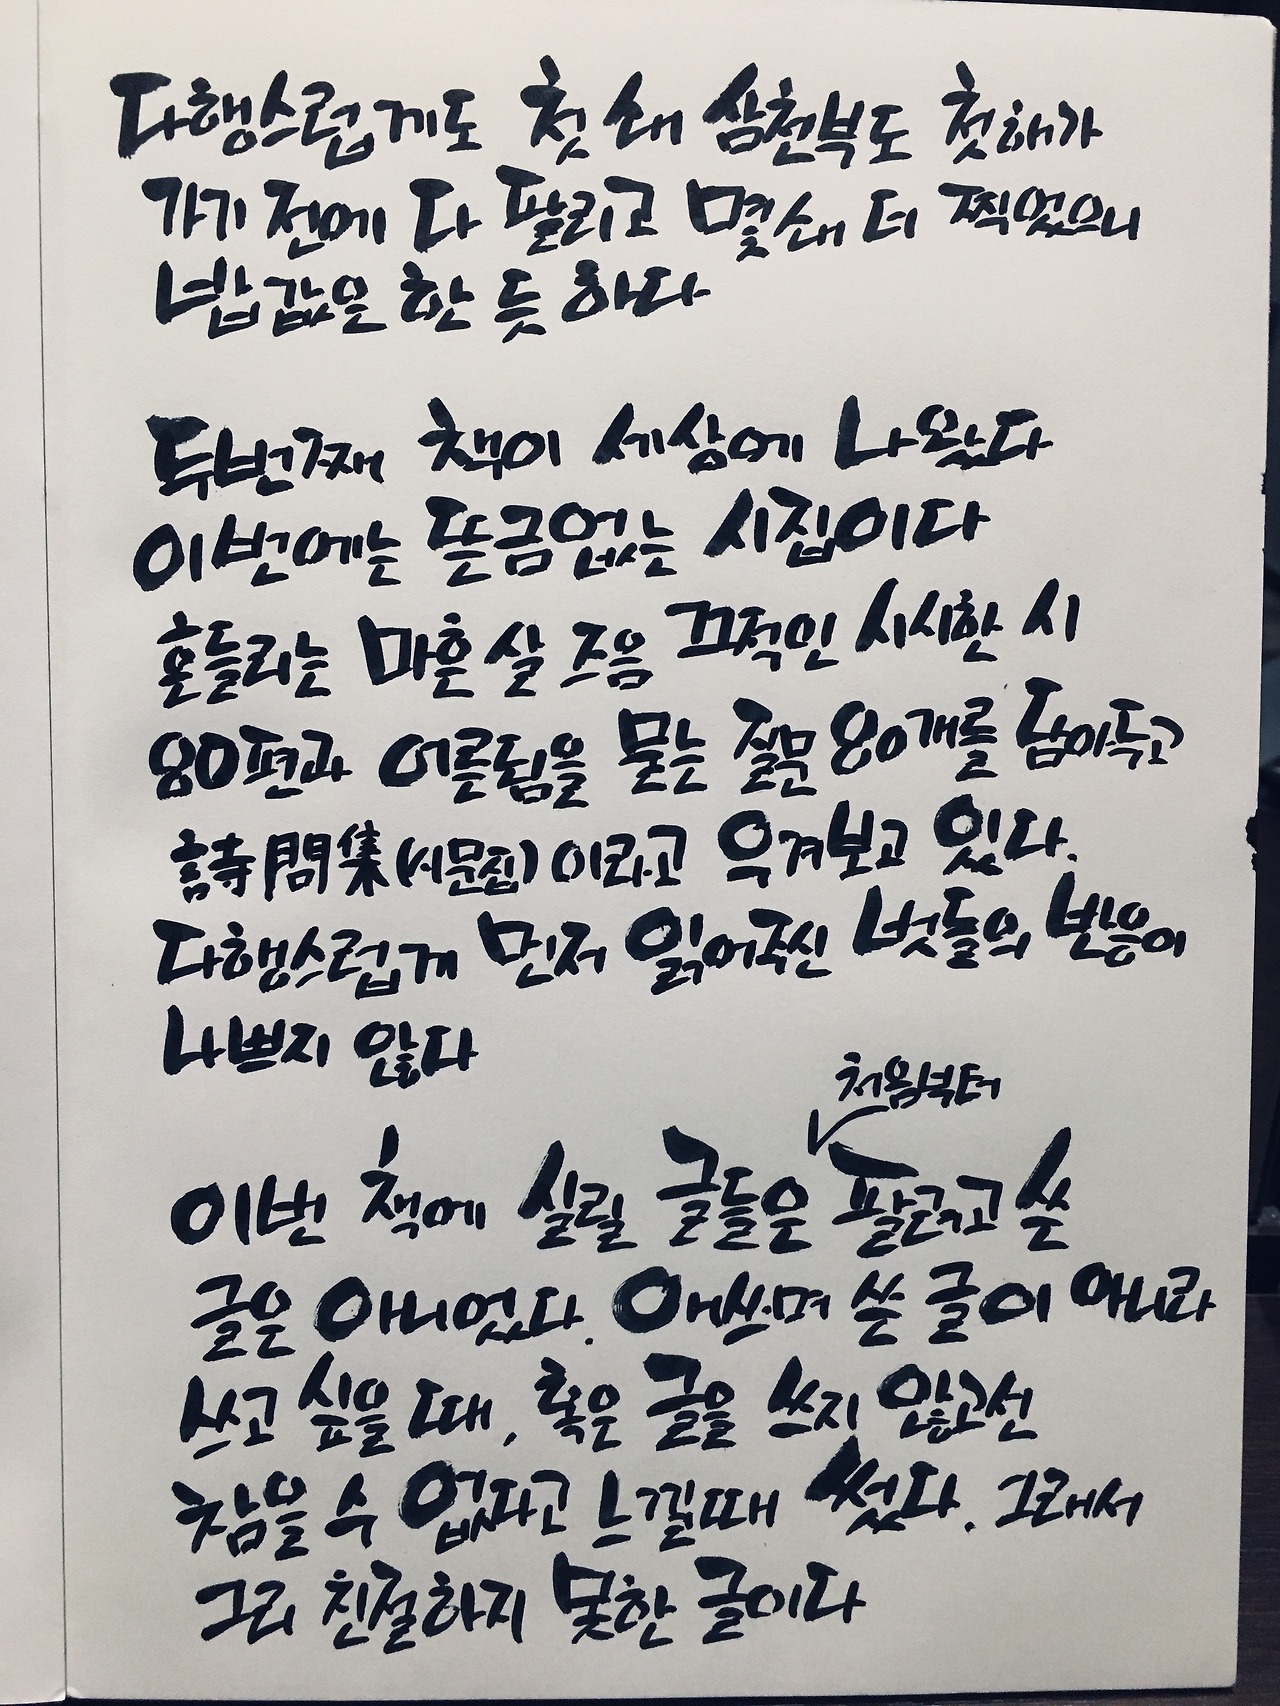 다행스럽게도 첫 쇄 삼천부도 첫해가
가기 전에 다 팔리고 몇쇄 더 찍었으니
밥값은 한 듯 하다
두번째 책이 세상에 나왔다
이번에는 뜬금없는 시집이다
흔들리는 마흔 살 즈음 끄적인 시시한 시
80편과 어른됨을 묻는 질문 80개를 담아두고
詩問集(시문집)이라고 우겨보고 있다.
다행스럽게 먼저 읽어주신 벗들의 반응이
나쁘지 않다
처음부터
이번 책에 실릴 글들은 팔려고 쓴
글은 아니었다. 애쓰며 쓴 글이 아니라
쓰고 싶을 때, 혹은 글을 쓰지 않고선
참을 수 없다고 느낄때 썼다. 그래서
그리 친절하지 못한 글이다